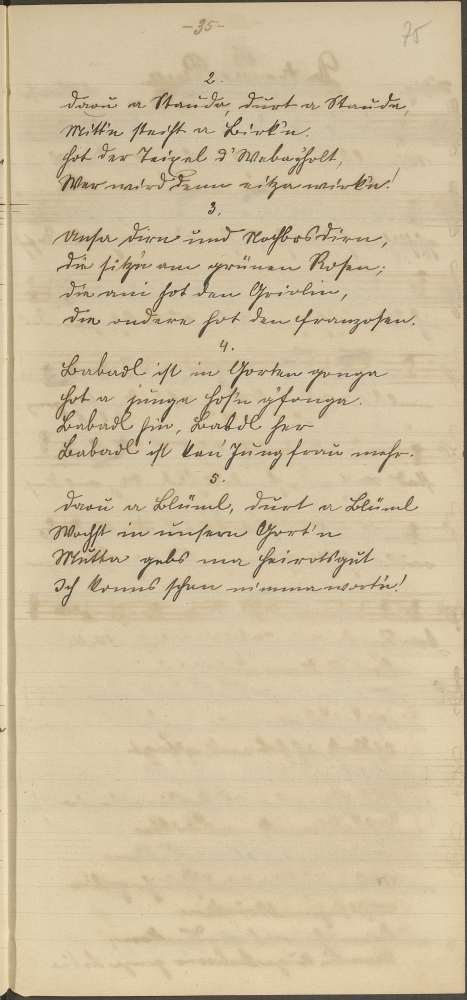 -35-
75
2.
Daou a Stauda, durt a Stauda,
Mitt'n steiht a Birk'n.
Hot der Teixel d' Weba g'holt,
Wer wird denn eitza wirk'n!
3.
Unsa Dirn und Nochbosdirn,
Die sitz'n am grünen Rosen;
Die ani hot den
Die andere hot den Franzosen.
4.
Babadl ist in Gorten gonga
Hot a junge Hos'n g'fonga.
Babadl hin, Babadl her
Babadl ist kan' Jungfrau mehr.
5.
Daou a Blüml, durt a Blüml
Wochst in unsern Gort'n
Mutta gebs ma Heirotsgut
Ich konns schon nimma wort'n!